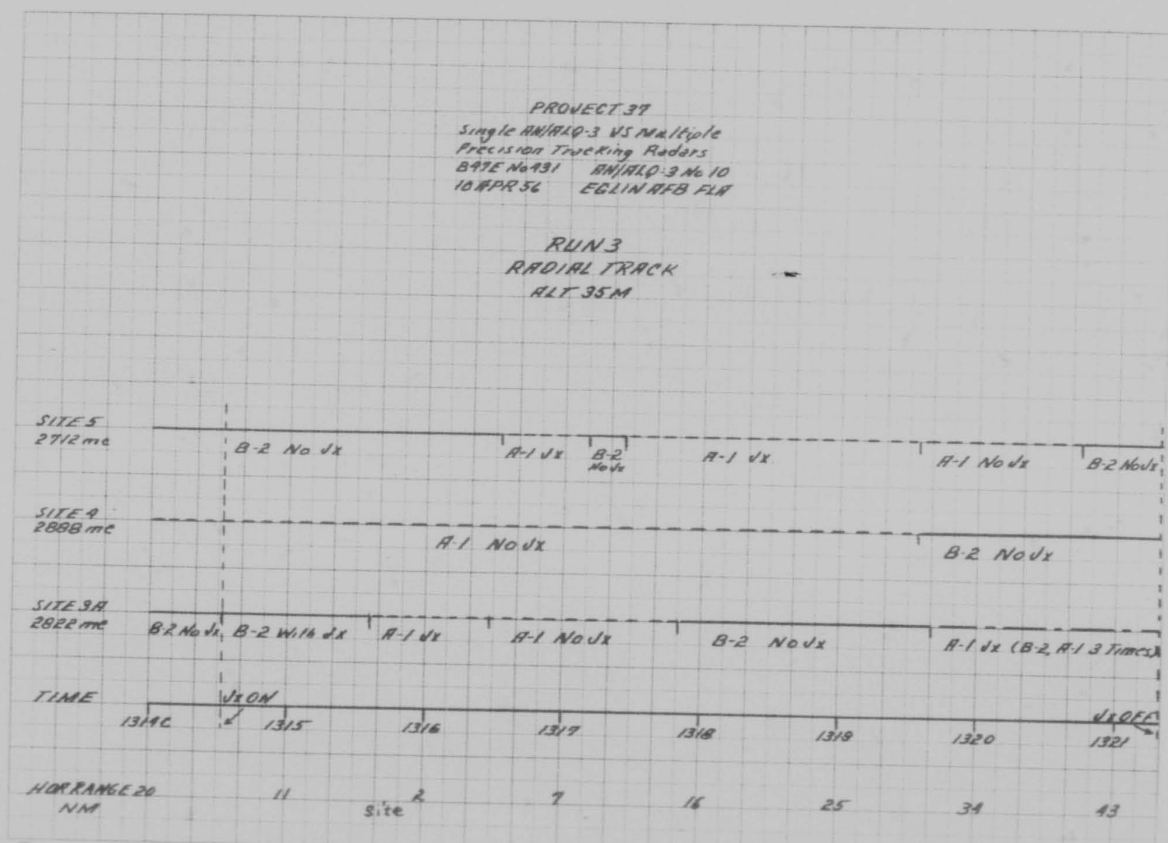 PROJECT 37
Single AN/ALQ-3 VS Multiple
Precision Tracking Radars
B47E No 431 AN/ALQ-3 No 10
10 APR 56 EGLIN AFB FLA
RUN 3
RADIAL TRACK
ALT 35M
SITE 5
2712 mc
B-2 No Jx
A-1 Jx
B-2
No Jx
A-1 Jx
A-1 No Jx
B-2 No Jx
SITE 4
2888 mc
A-1 No Jx
B-2 No Jx
SITE 3A
2822 mc
B-2 No Jx
B-2 With Jx
A-1 Jx
A-1 No Jx
B-2 No Jx
A-1 Jx (B-2, A-1 3 Times)
TIME
Jx ON
Jx OFF
1314C 1315 1316 1317 1318 1319 1320 1321
HOR RANGE 20 11 2 7 16 25 34 43
NM site